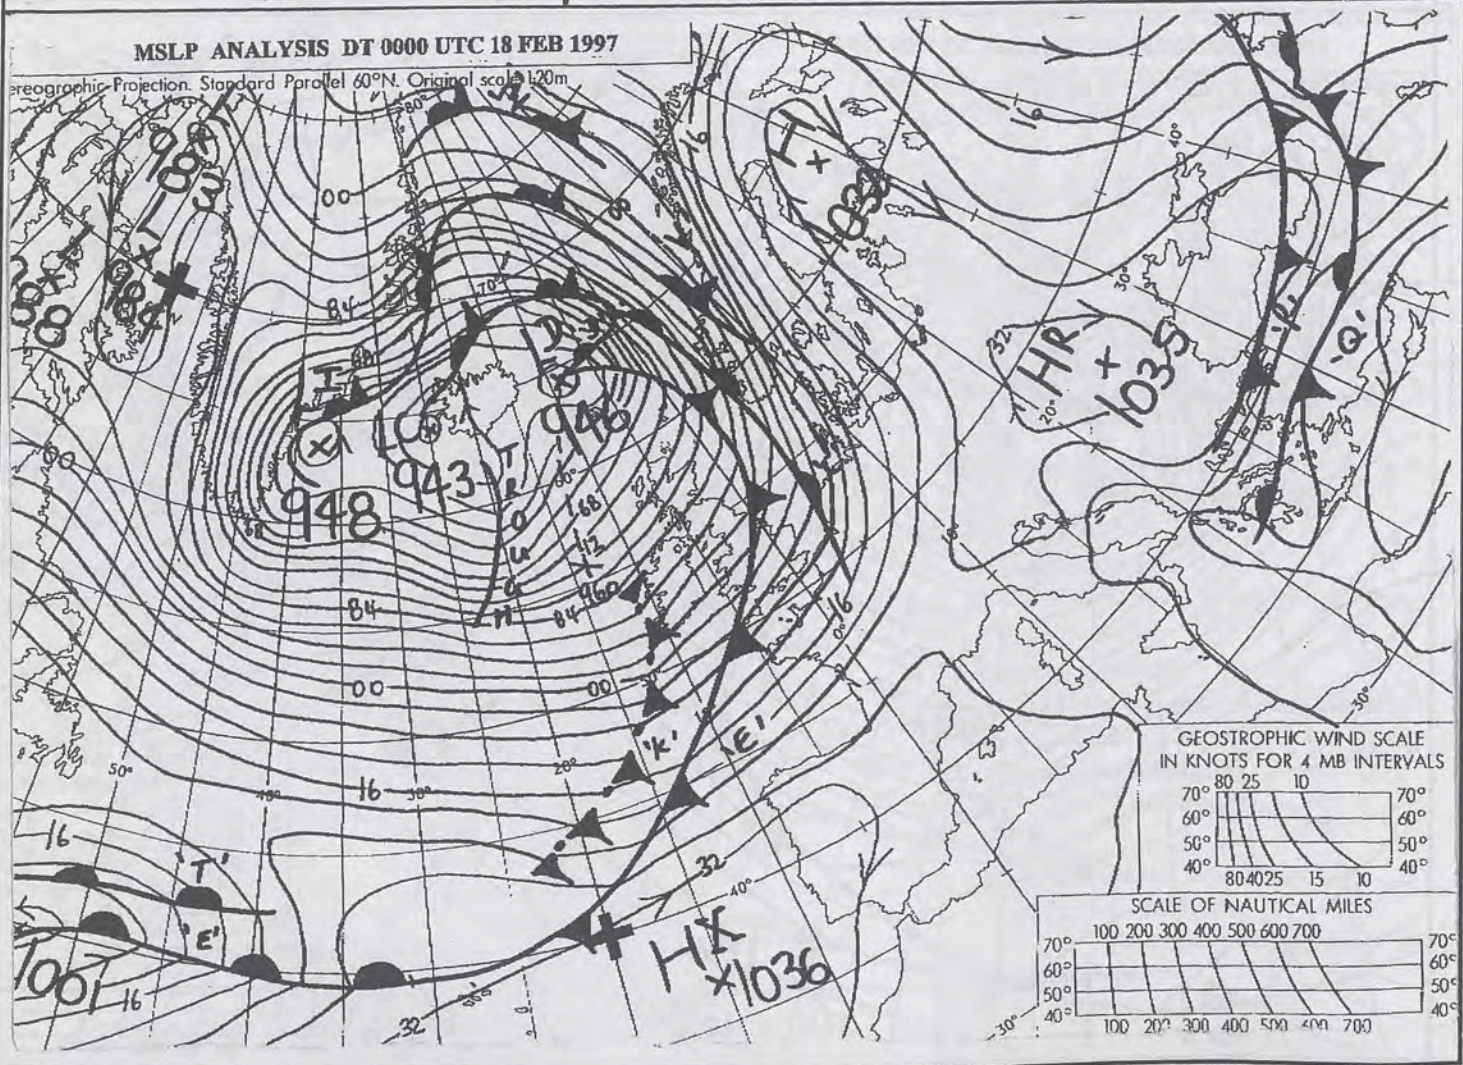 MSLP ANALYSIS DT 0000 UTC 18 FEB 1997
ereographic Projection. Standard Parallel 60°N. Original scale 1:20m
80°
16
983
00
H
1038
40°
984
988
84
70°
30°
'P'
'Q'
32
HR
1035
20°
L
946
948
943
TROUGH
60°
68
72
960
00
84
84
16
0°
16
00
00
'K'
'E'
50°
40°
16
30°
20°
16
'T'
'E'
1001
16
32
32
40°
H
1036
30°
30°
GEOSTROPHIC WIND SCALE
IN KNOTS FOR 4 MB INTERVALS
80 25 10
70° 70°
60° 60°
50° 50°
40° 40°
80 40 25 15 10
SCALE OF NAUTICAL MILES
100 200 300 400 500 600 700
70° 70°
60° 60°
50° 50°
40° 40°
100 200 300 400 500 600 700